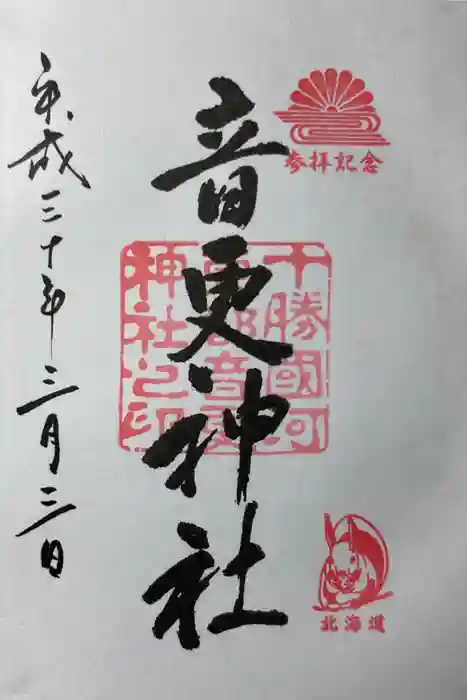 参拝記念
音更神社
十勝國河
東郡音更
神社之印
北海道
平成三十年三月三日